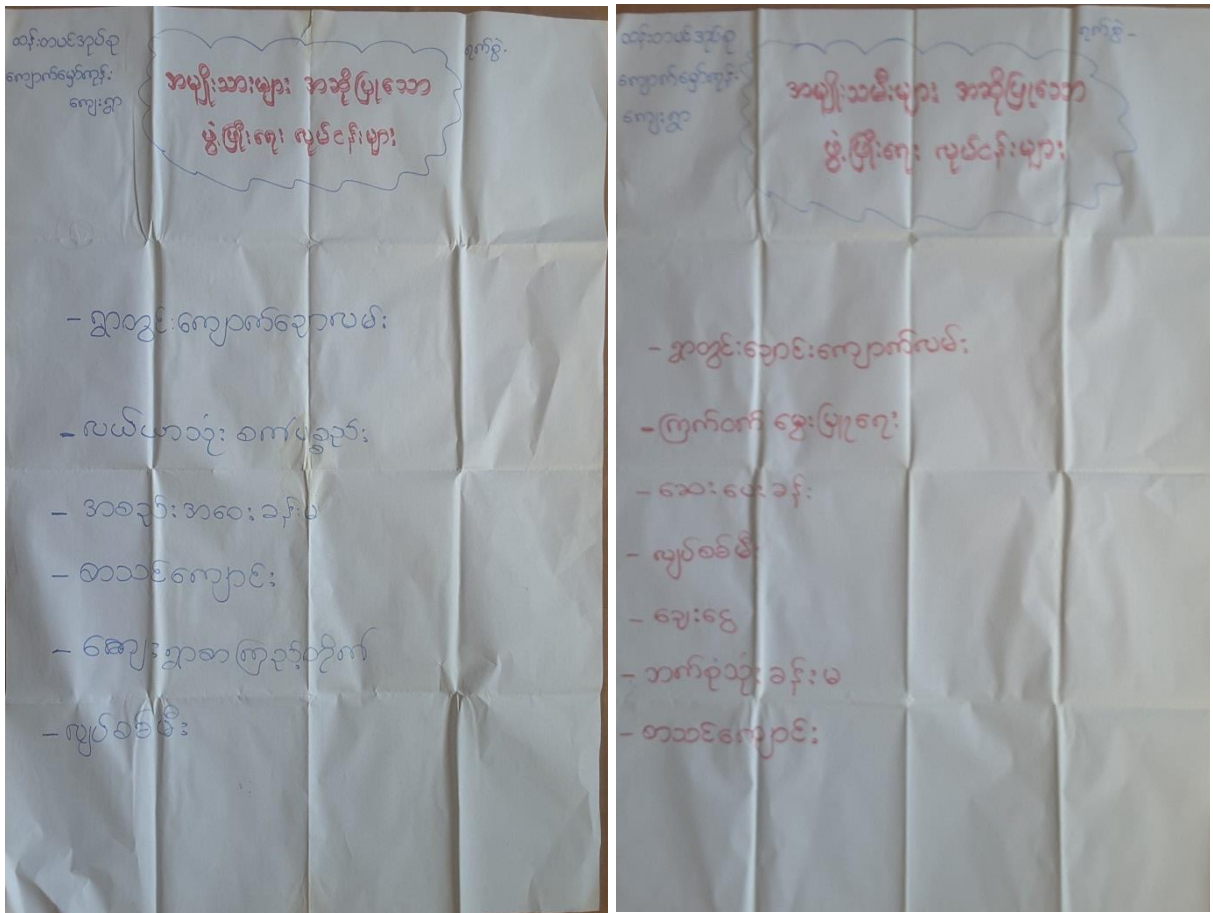 ထန်းတပင်အုပ်စု
ကျောက်မှော်ကုန်း
ကျေးရွာ
ရက်စွဲ -
အမျိုးသားများ အဆိုပြုသော
ဖွံ့ဖြိုးရေး လုပ်ငန်းများ
- ရွာတွင်းကျောက်ချောလမ်း
- လယ်ယာသုံး စက်ပစ္စည်း
- အစည်းအဝေးခန်းမ
- စာသင်ကျောင်း
- ကျေးရွာစာကြည့်တိုက်
- လျှပ်စစ်မီး
ထန်းတပင်အုပ်စု
ကျောက်မှော်ကုန်း
ကျေးရွာ
ရက်စွဲ -
အမျိုးသမီးများ အဆိုပြုသော
ဖွံ့ဖြိုးရေး လုပ်ငန်းများ
- ရွာတွင်းချောင်းကျောက်လမ်း
- ကြက်ဝက် မွေးမြူရေး
- ဆေးပေးခန်း
- လျှပ်စစ်မီး
- ချေးငွေ
- ဘက်စုံသုံးခန်းမ
- စာသင်ကျောင်း